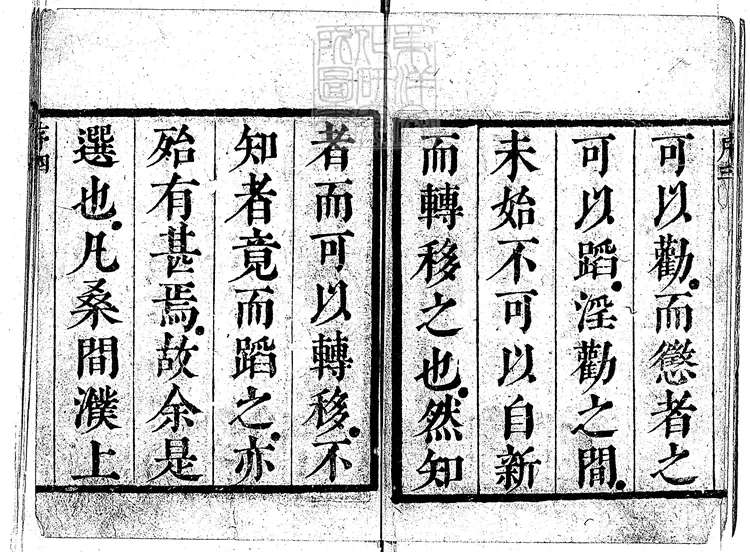 序三
可以勸。而懲者之
可以蹈。淫勸之間。
未始不可以自新
而轉移之也。然知
者而可以轉移。不
知者竟而蹈之。亦
殆有甚焉。故余是
選也。凡桑間濮上
序四